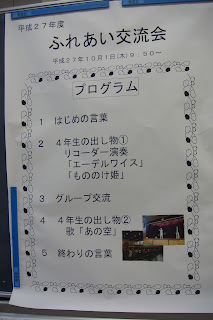 平成27年度
ふれあい交流会
平成27年10月1日(木)9:50~
プログラム
1 はじめの言葉
2 4年生の出し物①
リコーダー演奏
「エーデルワイス」
「もののけ姫」
3 グループ交流
4 4年生の出し物②
歌「あの空」
5 終わりの言葉